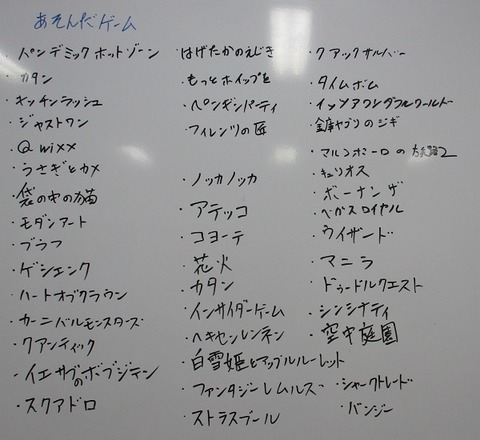 あそんだゲーム
・パンデミックホットゾーン
・カタン
・キッチンラッシュ
・ジャストワン
・Qwixx
・うさぎとカメ
・袋の中の猫
・モダンアート
・ブラフ
・ゲシェンク
・ハートオブクラウン
・カーニバルモンスターズ
・クアンティック
・イエサブのボブジテン
・スクアドロ
・はげたかのえじき
・もっとホイップを
・ペンギンパーティ
・フィレンツェの匠
・ノッカノッカ
・アテッコ
・コヨーテ
・花火
・カタン
・インサイダーゲーム
・ヘキセンレンネン
・白雪姫とアップルルーレット
・ファンタジーレムルズ
・ストラスブール
・クアックサルバー
・タイムボム
・イッツアワンダフルワールド
・金庫ヤブリのジギ
・マルコポーロの旅路2
・キュリオス
・ボーナンザ
・ベガスロイヤル
・ウィザード
・マニラ
・ドゥードルクエスト
・シンシナティ
・空中庭園
・シャークトレード
・バンジー